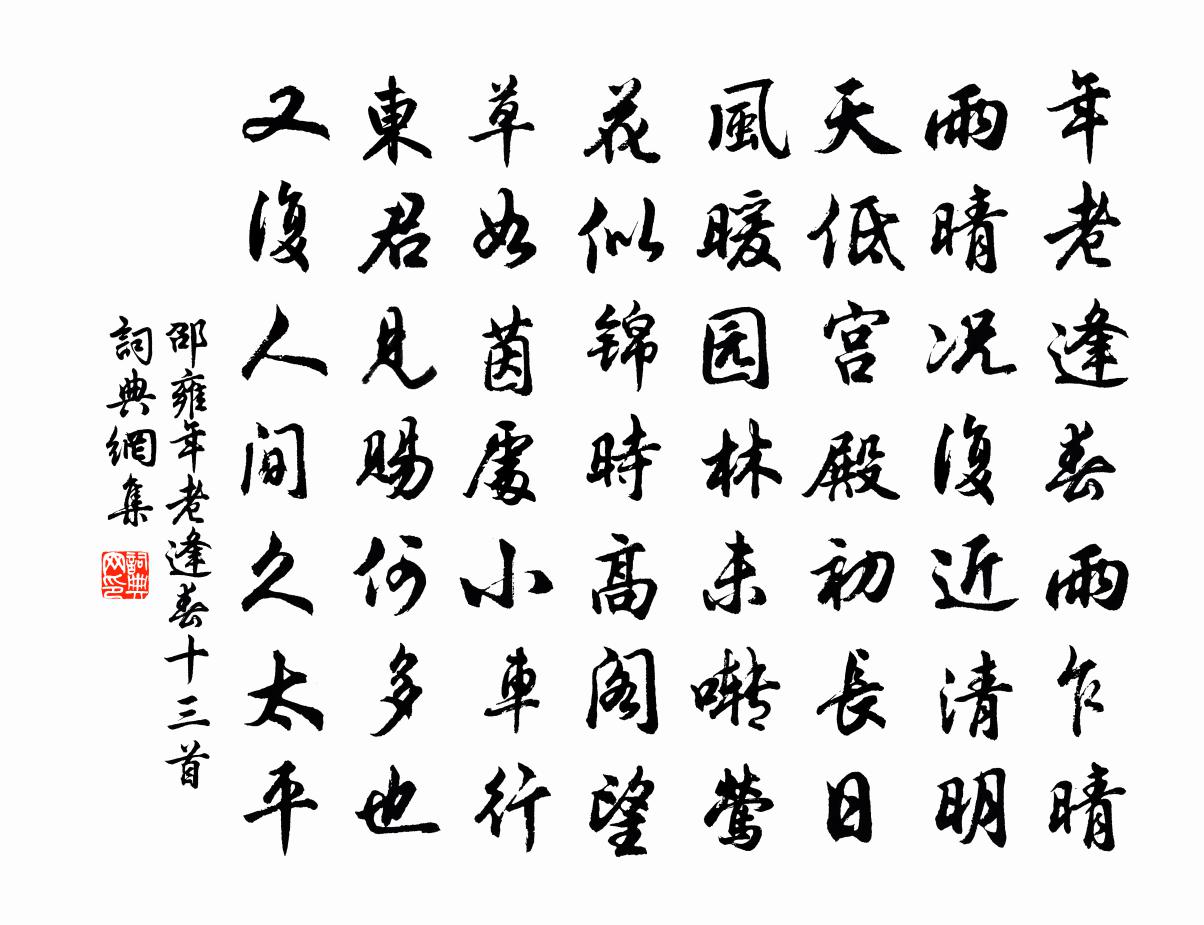 年老逢春雨乍晴
雨晴况復近清明
天低宫殿初長日
風暖园林未囀莺
花似锦時高阁望
草如茵處小車行
東君見賜何多也
又復人間久太平
邵雍年老逢春十三首
詞典網集
詞典网印